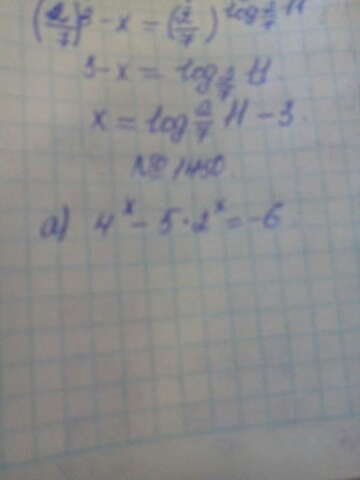 (2/7)^3 - x = (2/7)^log_2/7 11
3 - x = log_2/7 11
x = log_2/7 11 - 3.
№ 1490
а) 4^x - 5·2^x = -6